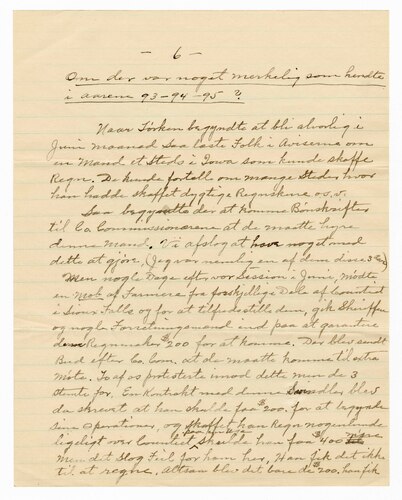 - 6 -
Om der var noget merkelig som hendte
i aarene 93-94-95 ?
Naar Törken begyndte at bli alvorlig i
Juni maaned Saa læste Folk i Aviserne om
en Mand et Steds i Iowa som kunde skaffe
Regn. De kunde fortelle om mange Steder hvor
han hadde skaffet dygtige Regnskure o.s.v.
Saa begyndte der at komme Bönskrifter
til Co. Commissionærene at de maatte hyre
denne Mand. Vi afslog at have noget med
dette at gjøre. (Jeg var nemlig en af dem disse 3 Aar)
Men nogle Dage efter vor Session i Juni, mödte
en Mob af Farmere fra forskjellige Dele af Countiet
i Sioux Falls og for at tilfredsstille dem, gik Sheriffen
og nogle Forretningsmænd end paa at garantere
Regnmaker $200 for at komme. Der blev sendt
Bud efter Co. Com. at de maatte komme til extra
Möte. To af os protesterte imod dette men de 3
stemte for. En Kontrakt med denne Svindler blev
da skrevet at han skulde faa $200. for at begynde
sine Operationer, og skaffet han Regn nogenlunde
ligeligt over Countiet skulde han faa $400
men det slog Feil for ham her. Han fik det ikke
til at regne. Altsaa blev det bare de $200. han fik